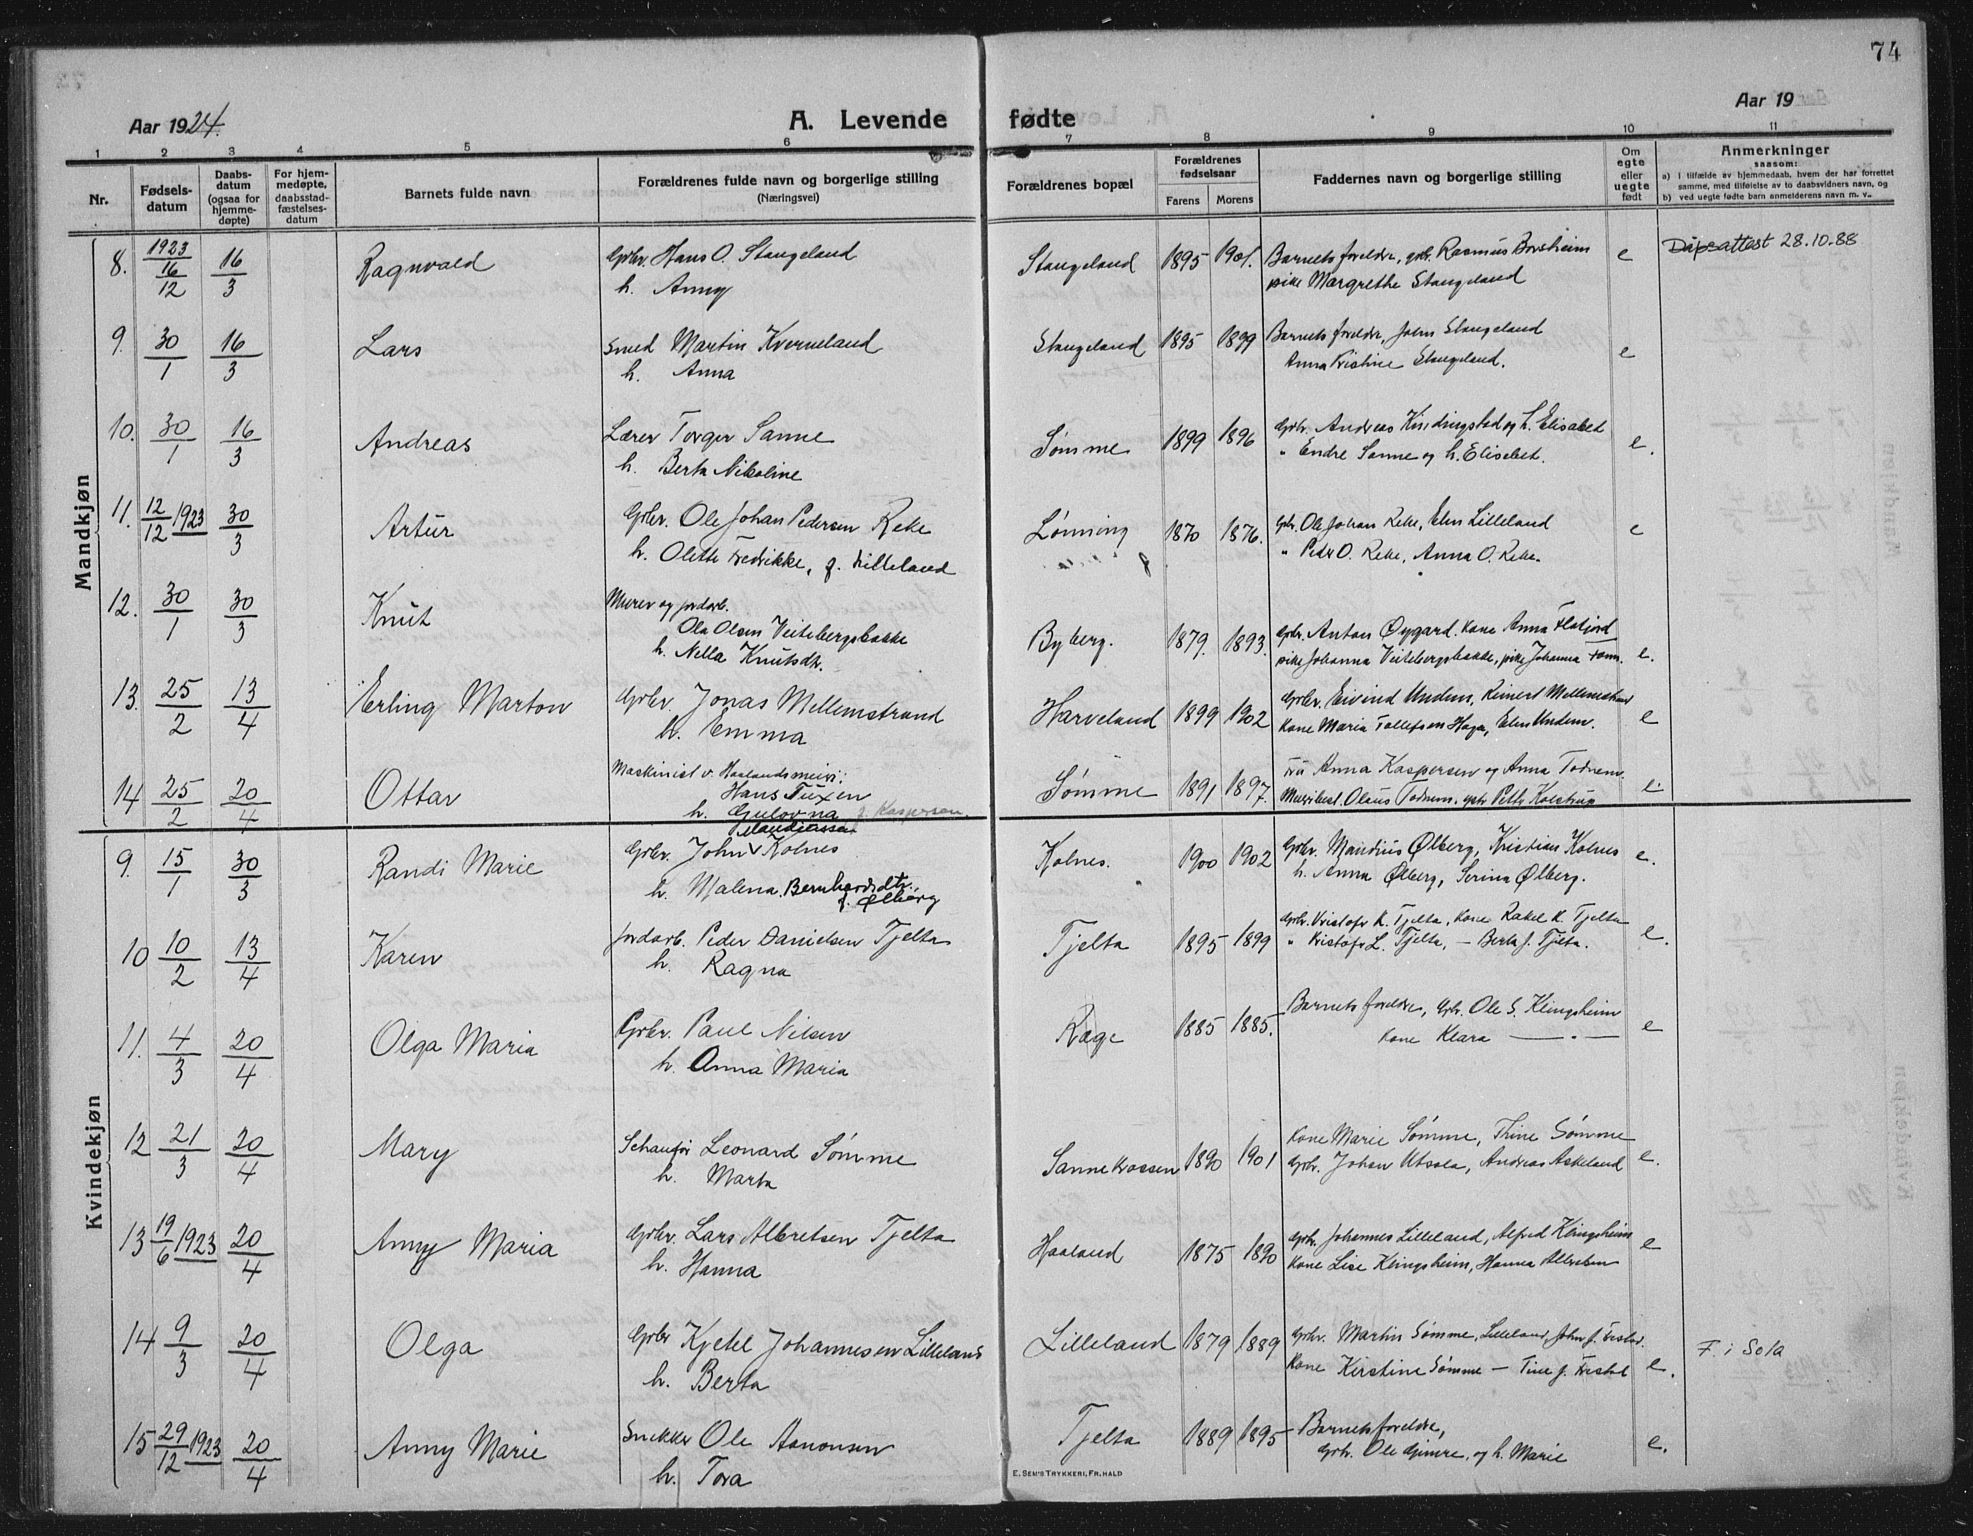 74
Aar 1924.
A. Levende
fødte
Aar 19
1 2 3 4 5 6 7 8 9 10 11
Nr.
Fødsels-
datum
Daabs-
datum
(ogsaa for
hjemme-
døpte)
For hjem-
medøpte,
daabsstad-
fæstelses-
datum
Barnets fulde navn
Forældrenes fulde navn og borgerlige stilling
(Næringsvei)
Forældrenes bopæl
Forældrenes
fødselsaar
Farens Morens
Faddernes navn og borgerlige stilling
Om
egte
eller
uegte
født
Anmerkninger
saasom:
a) I tilfælde av hjemmedaab, hvem der har forrettet
samme, med tilføielse av to daabsvidners navn, og
b) ved uegte fødte barn anmelderens navn m. v.
Mandkjøn
8. 1923 16/12 16/3 Ragnvald Grbr. Hans O. Stangeland Stangeland 1895 1901. Barnets foreldre, grb. Rasmus Borsheim e Dåpsattest 28.10.88
h. Anny pike Margrethe Stangeland
9. 30/1 16/3 Lars Smed Martin Kverneland Stangeland 1895 1899 Barnets foreldre, John Stangeland e
h. Anna Anna Kristine Stangeland.
10. 30/1 16/3 Andreas Lærer Torger Sanne Sømme 1899 1896 Grbr. Andreas Kindingstad og h. Elisabet e.
h. Berta Nikoline " Endre Sanne og h. Elisebet.
11. 12/12 1923 30/3 Artur Grbr. Ole Johan Pedersen Reke Lønning 1870 1876. Grb. Ole Johan Reke, Elen Lilleland e
h. Olette Fredrikke, f. Lilleland " Peder O. Reke, Anna O. Reke.
12. 30/1 30/3 Knut Murer og jordarb.
Ola Olsen Veitebergsbakke Byberg. 1879. 1893. Grbr. Anton Øygard. Kone Anna Flatjord
h. Nella Knutsdt. pike Johanna Veitebergsbakke, pike Johanna e.
13. 25/2 13/4 Erling Marton Grbr. Jonas Mellemstrand Harveland 1899 1902 Grbr. Eivind Undem, Reinert Mellemstrand e
h. Emma Kone Maria Tollefsen Haga, Elen Undem.
14 25/2 20/4 Ottar Maskinist v. Haalandsmeieri: Fru Anna Kaspersen og Anna Todnem.
Hans Tuxen Sømme 1891 1897. Olaus Todnem. e.
h. Gulovna f. Kaspersen.
Kvindekjøn
9. 15/1 30/3 Randi Marie Grbr. John Mandiussen Kolnes Kolnes. 1900 1902 Grbr. Mandius Ølberg, Kristian Kolnes e.
h. Malena Bernhardsdtr. h. Anna Ølberg, Serina Ølberg.
f. Ølberg
10 10/2 13/4 Karen Jordarb. Peder Danielsen Tjelta Tjelta 1895 1899 Grbr. Kristofr K. Tjelta, Kone Rakel K. Tjelta e.
h. Ragna " Kristofr L. Tjelta, — Berta J. Tjelta.
11. 4/3 20/4 Olga Maria Grbr. Paul Nilsen Ræge 1885 1885. Barnets foreldre, Grb. Ole S. Klingsheim e
h. Anna Maria Kone Klara — " —
12 21/3 20/4 Mary Schaufør Leonard Sømme Sannekrossen 1890 1901 Kone Marie Sømme, Thine Sømme e.
h. Marta Grbr. Johan Utsola, Andreas Askeland
13 19/6 1923 20/4 Anny Maria Grbr. Lars Albretsen Tjelta Haaland 1875 1890 Grbr. Johannes Lilleland, Alfred Klingsheim e
h. Hanna Kone Lise Klingsheim, Hanna Albretsen
14 9/3 20/4 Olga Grbr Kjetel Johannesen Lilleland Lilleland 1879 1889 Grbr. Martin Sømme, Lilleland, John J. e. F. i Sola
h. Berta Kone Kirstine Sømme — Tine J.
15 29/12 1923 20/4 Anny Marie Snekker Ole Aanonsen Tjelta 1889 1895 Barnets foreldre, e.
h. Tora Grbr. Ole Gimre, og h. Marie
E. SEM'S TRYKKERI, FR.HALD